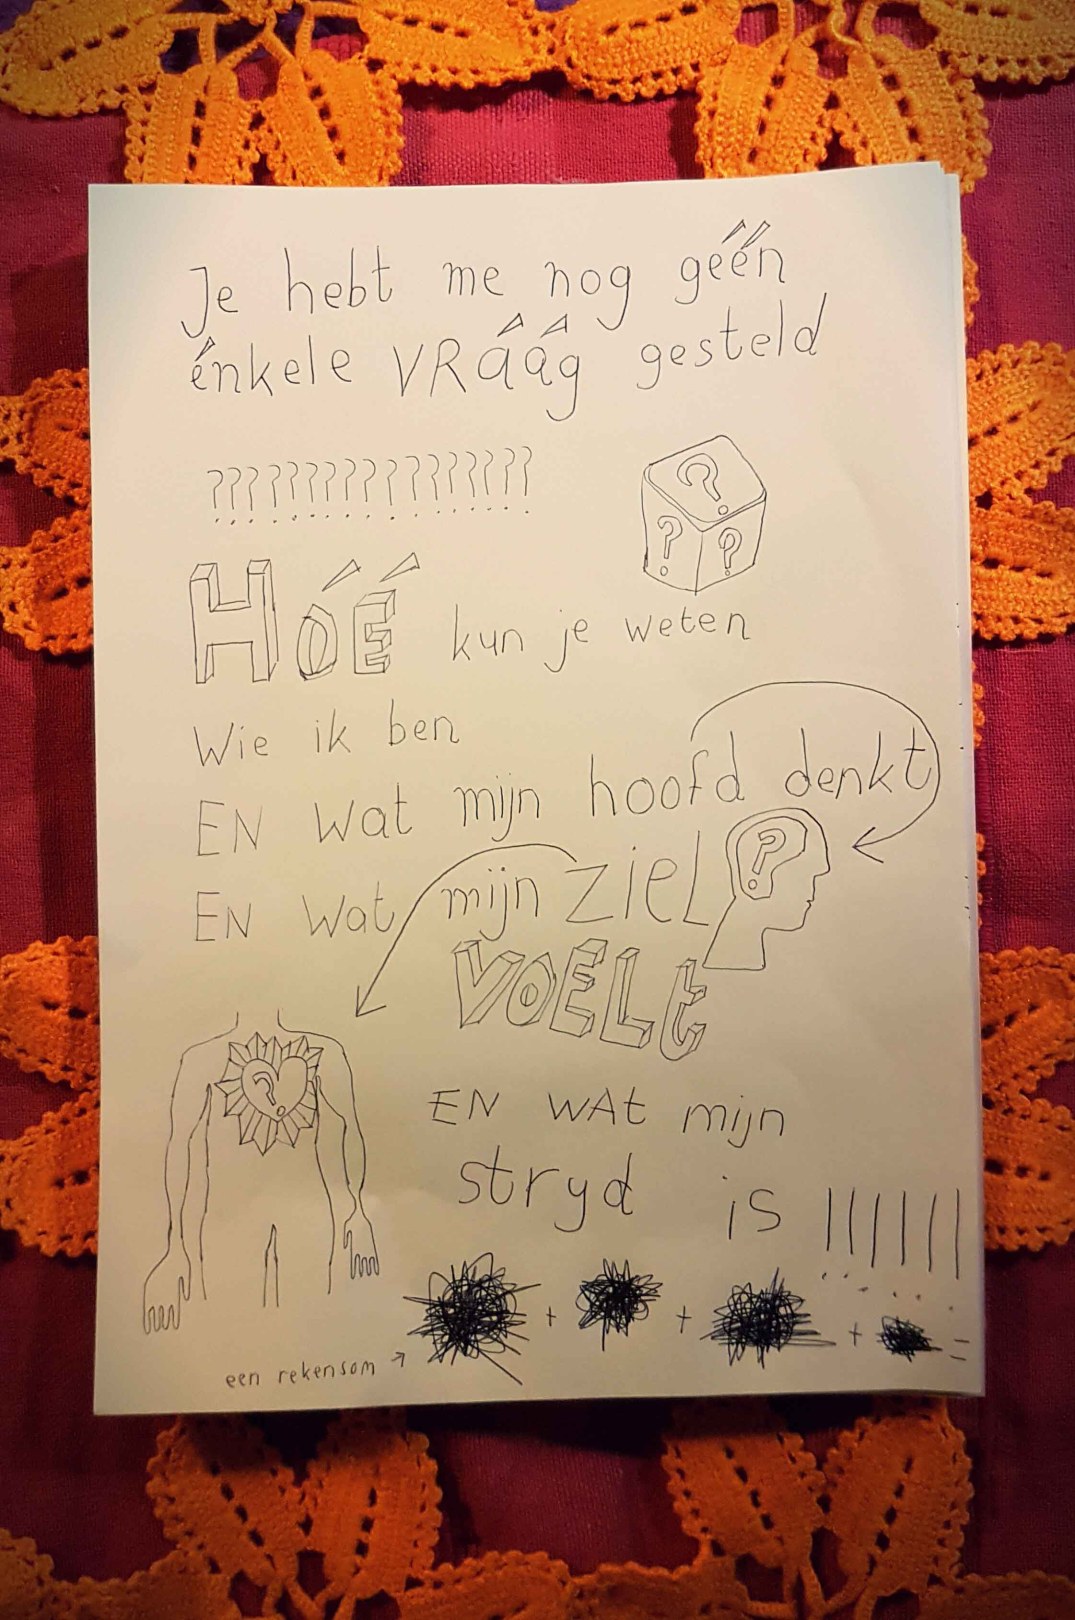 Je hebt me nog géén
énkele VRáág gesteld
??????????????????
HÓÉ kun je weten
Wie ik ben
EN wat mijn hoofd denkt
EN wat mijn ZIEL
VOELt
EN WAt mijn
stryd is !!!!!!
+ + + =
een rekensom